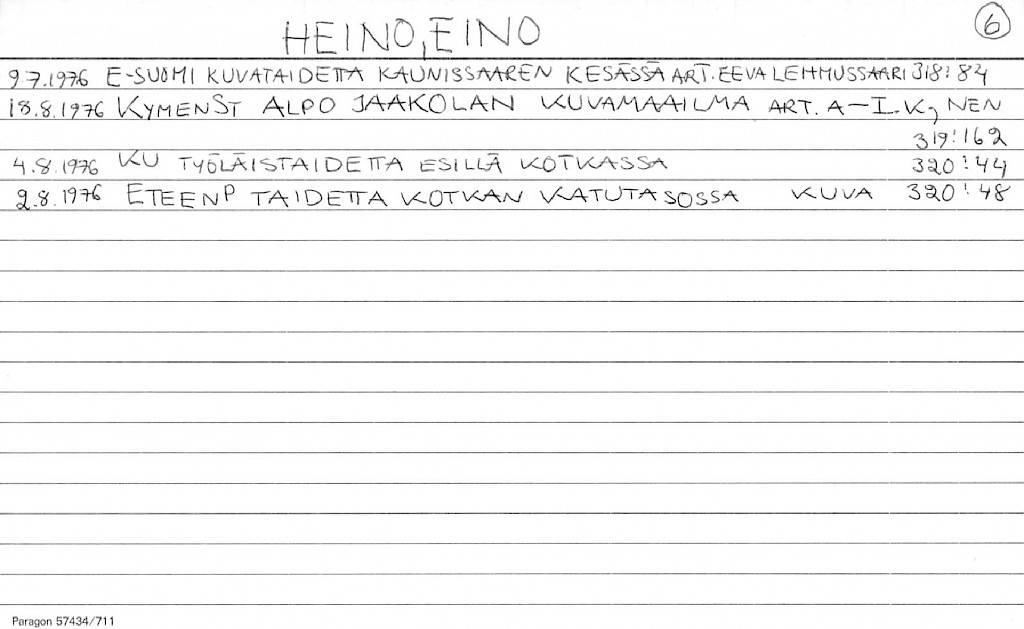 HEINO, EINO
6
9.7.1976 E-SUOMI KUVATAIDETTA KAUNISSAAREN KESÄSSÄ ART. EEVA LEHMUSSAARI 318:84
18.8.1976 KYMENST ALPO JAAKOLAN KUVAMAAILMA ART. A-I. K, NEN
319:162
4.8.1976 KU TYÖLÄISTAIDETTA ESILLÄ KOTKASSA 320:44
2.8.1976 ETEENP TAIDETTA KOTKAN KATUTASOSSA KUVA 320:48
Paragon 57434/711